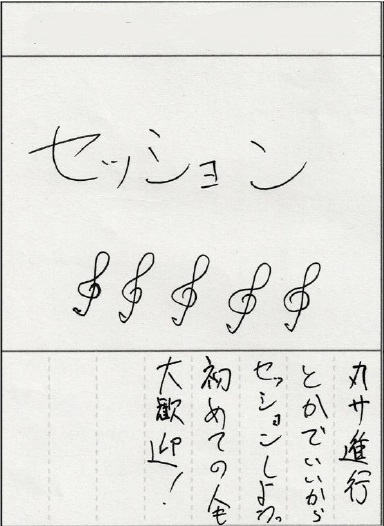 セッション
丸サ進行
とかでいいから
セッションしよう
初めての人も
大歓迎!